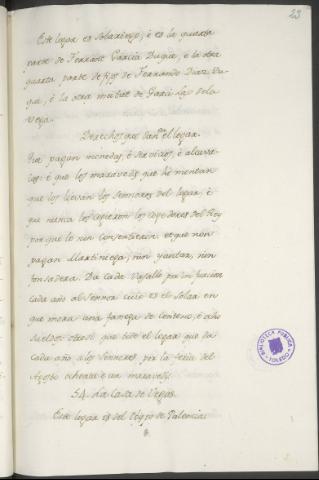 23
Este logar es Solariego, é es la quarta
parte de Ferrant Garcia Duque, é la otra
quarta parte de fijos de Ferrando Diaz Du-
que, é la otra meitat de Garci Laso de la
Vega.
Derechos que dan en el logar.
Ha pagan monedas, é servicios, é alcava-
las: é que los maravedis que hi montan
que los lievan los Sennores del logar, é
que nunca los cogieron los cogedores del Rey
porque lo non consentieron. et que non
pagan Martiniega, nin yantar, nin
fonsadera. Da cada Vasallo por infurcion
cada año al Sennor cuio es el Solar en
que mora una fanega de Centeno, é ocho
sueldos: otrosi que todo el logar que da
cada año a los Sennores por la feria del
Agosto ochenta é un maravedis.
54. La Casa de Vegas.
Este logar es del Obispo de Palencia.
BIBLIOTECA PUBLICA
TOLEDO